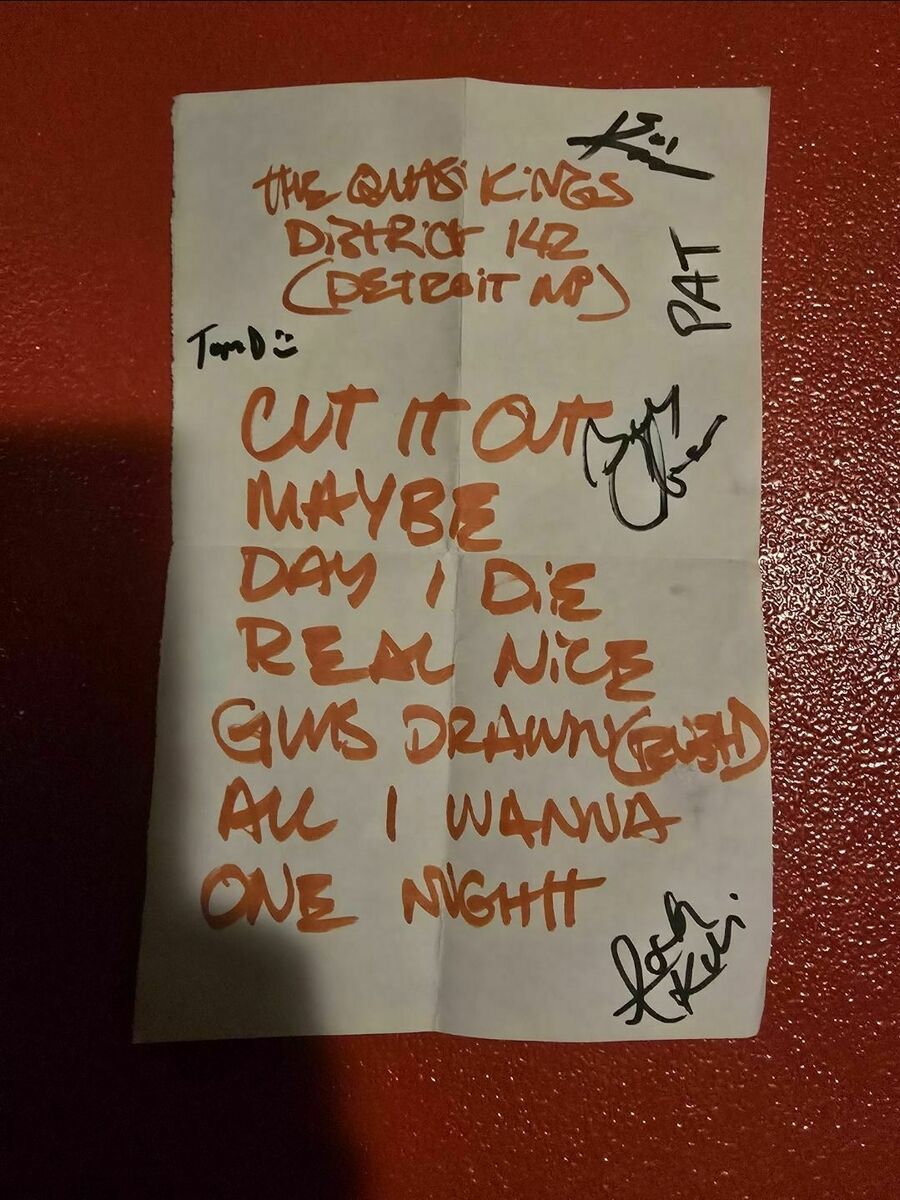 THE QUASI KINGS
DISTRICT 142
(DETROIT MI)
PAT
Tom D
CUT IT OUT
MAYBE
DAY I DIE
REAL NICE
GUNS DRAWN (BUSH)
ALL I WANNA
ONE NIGHT